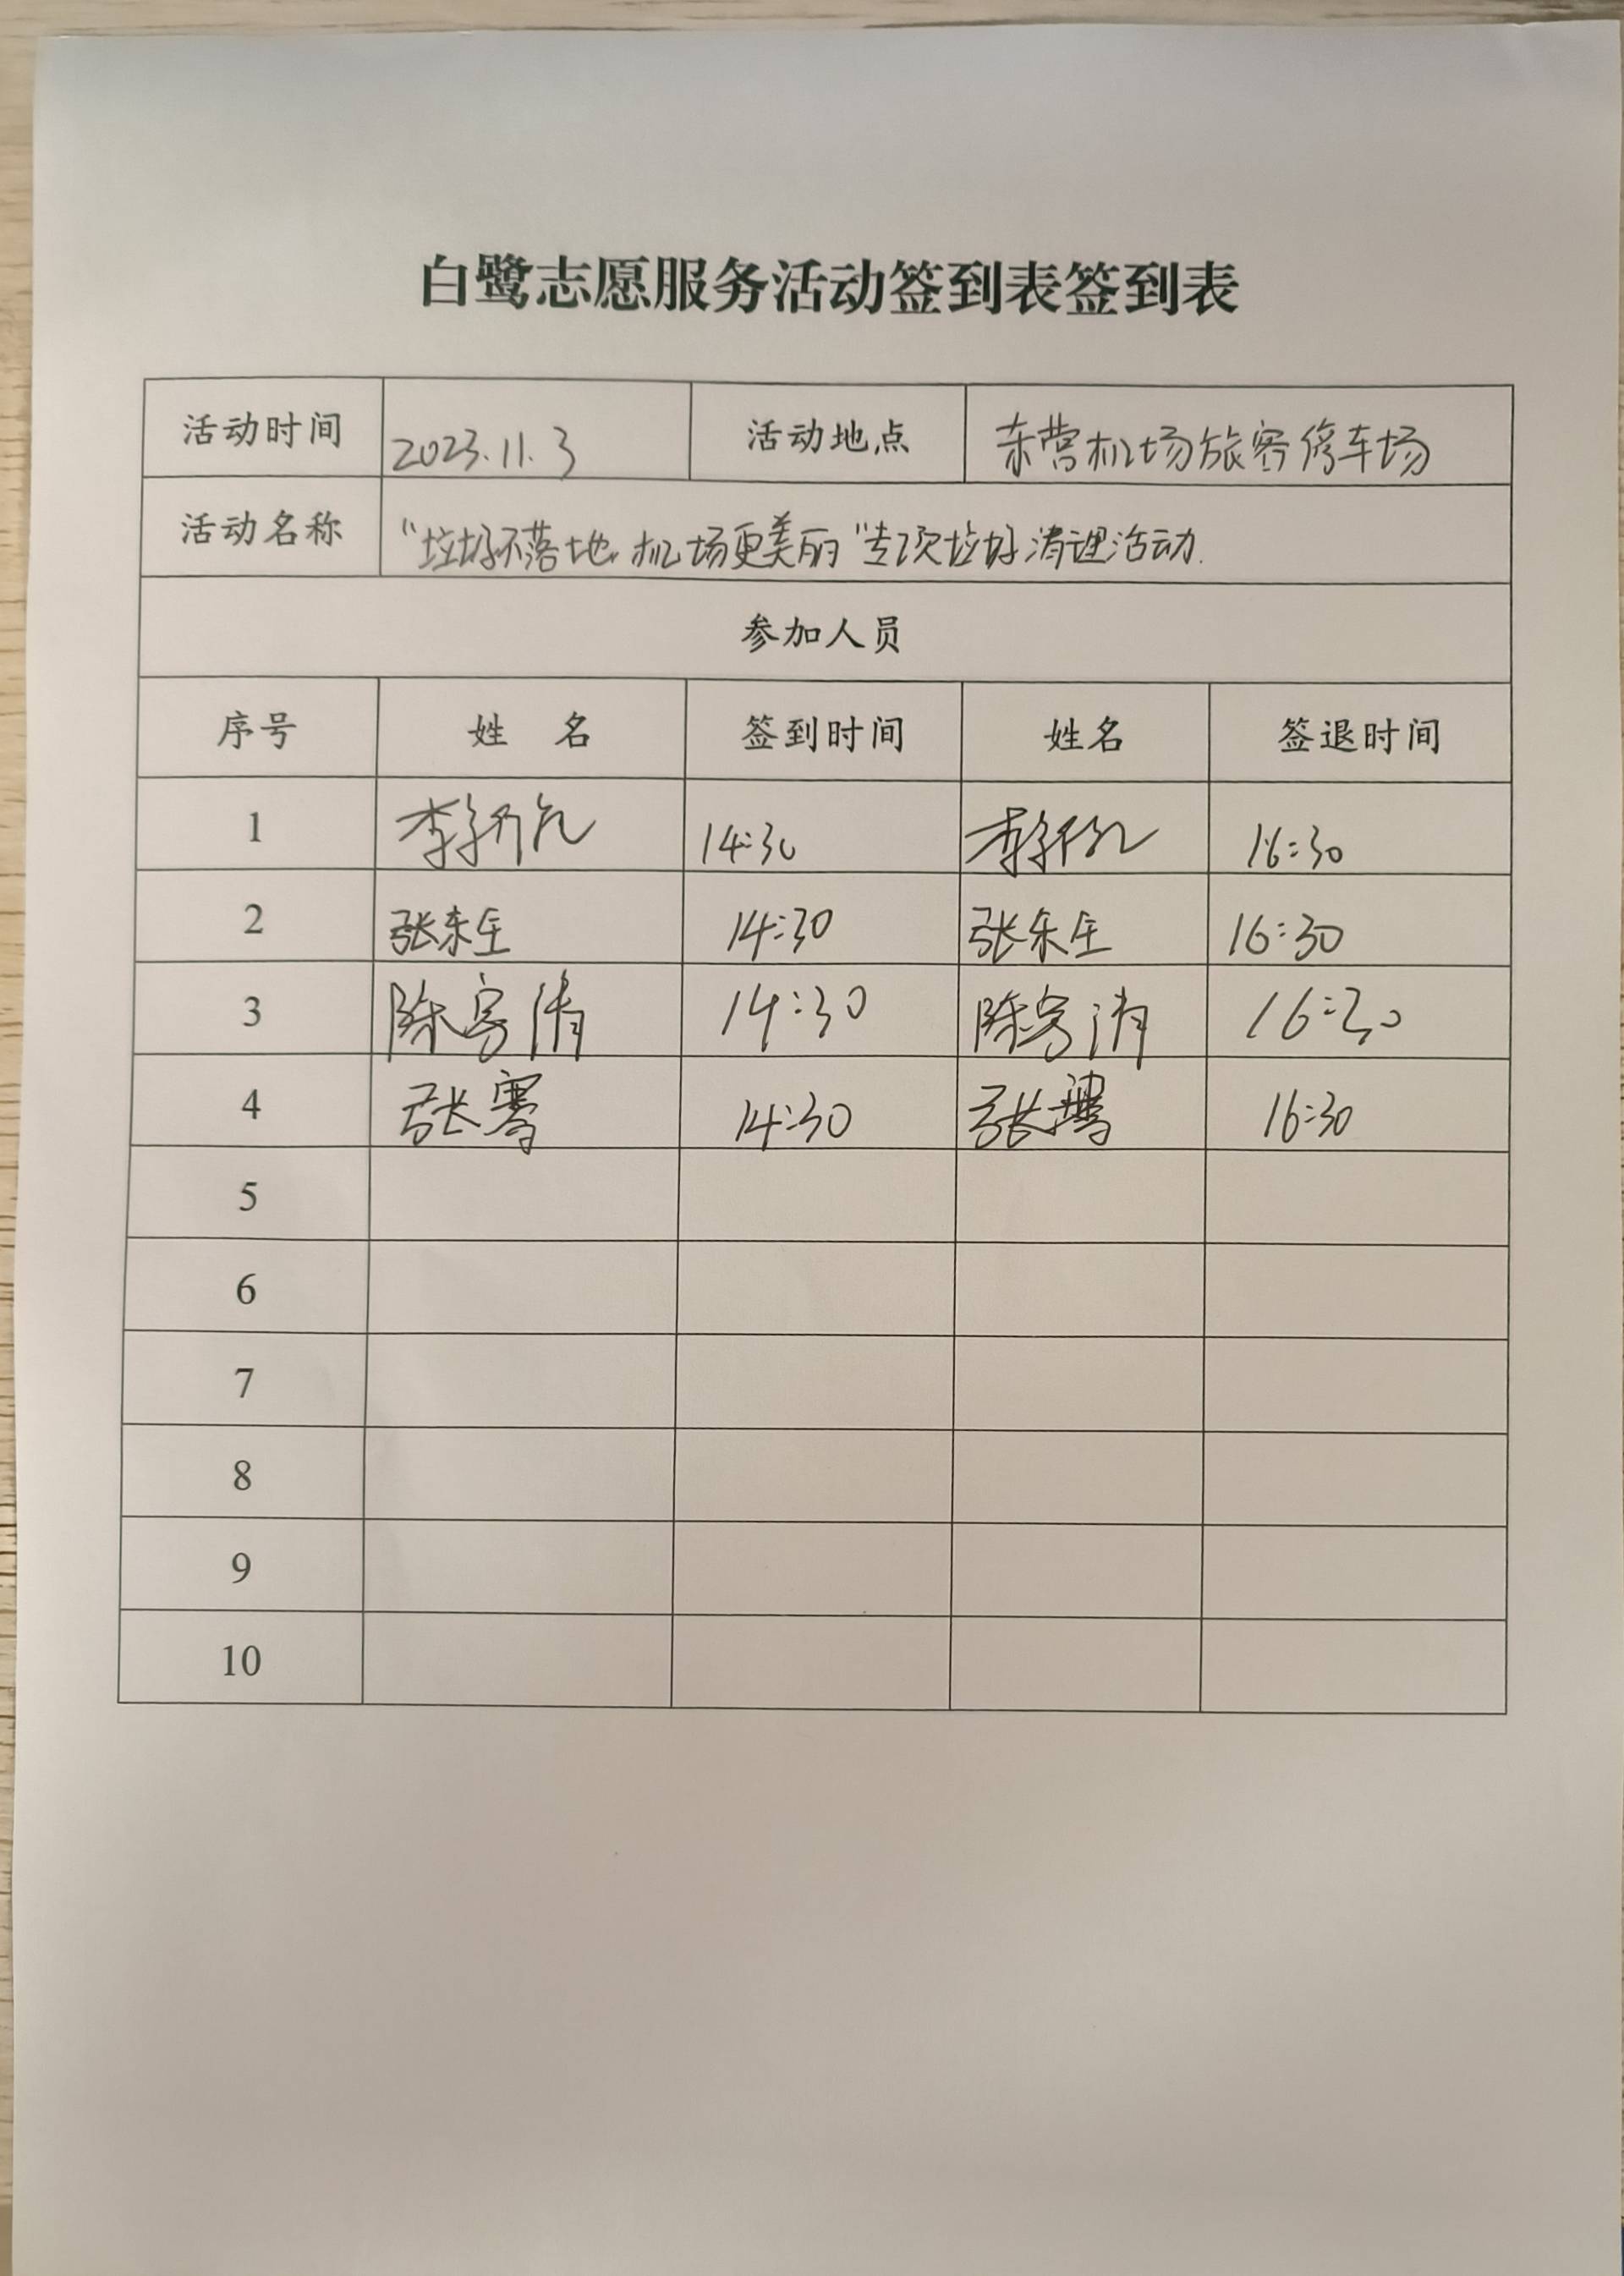 白鹭志愿服务活动签到表签到表
活动时间 2023.11.3 活动地点 东营机场旅客停车场
活动名称 “垃圾不落地 机场更美丽”专项垃圾清理活动.
参加人员
序号 姓 名 签到时间 姓名 签退时间
1 李 14:30 李 16:30
2 张东生 14:30 张东生 16:30
3 陈客清 14:30 陈客清 16:30
4 张骞 14:30 张 16:30
5
6
7
8
9
10